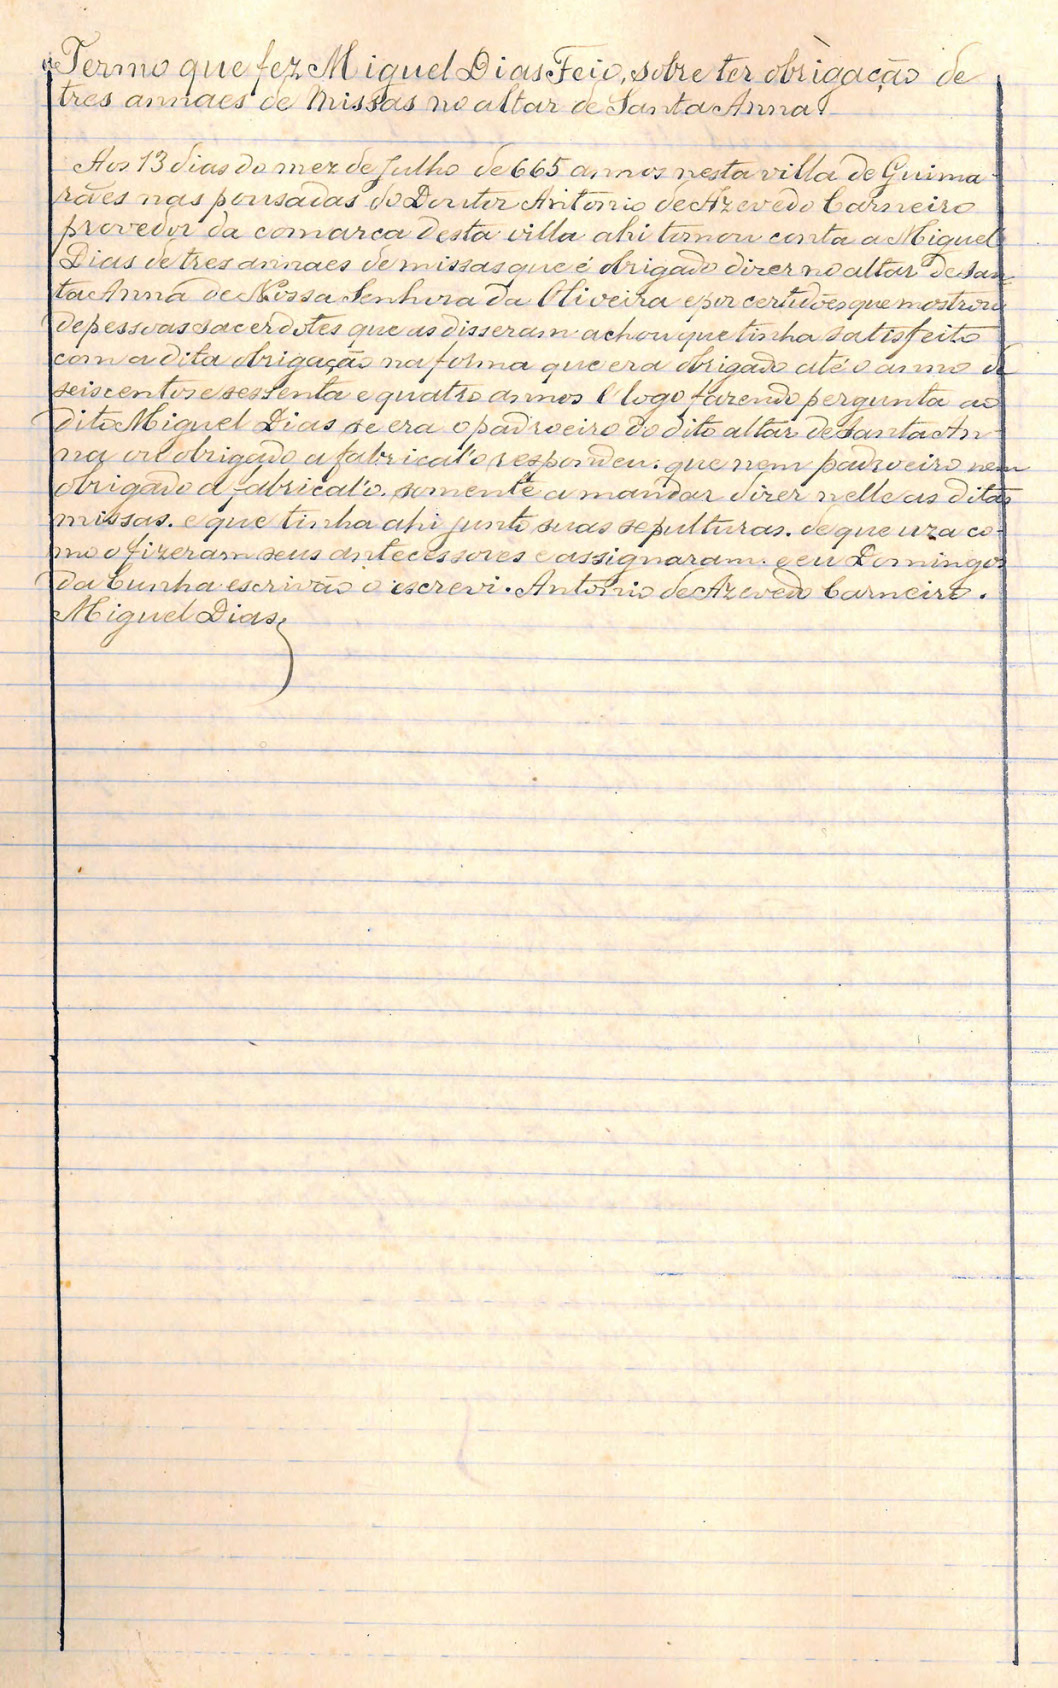 Termo que fez Miguel Dias Feio, sobre ter obrigação de
tres annaes de Missas no altar de Santa Anna.
Aos 13 dias do mez de Julho de 665 annos nesta villa de Guima-
rães nas pousadas do Doutor Antonio de Azevedo Carneiro
provedor da comarca desta villa ahi tomou conta a Miguel
Dias de tres annaes de missas que é obrigado dizer no altar de San-
ta Anna de Nossa Senhora da Oliveira e por certidões que mostrou
de pessoas sacerdotes que as disseram achou que tinha satisfeito
com a dita obrigação na forma que era obrigado até o anno de
seiscentos e sessenta e quatro annos E logo fazendo pergunta ao
dito Miguel Dias se era o padroeiro do dito altar de Santa An-
na ou obrigado a fabrical'o respondeu: que nem padroeiro nem
obrigado a fabrical'o. somente a mandar dizer nelle as ditas
missas. e que tinha ahi junto suas sepulturas. de que uza co-
mo o fizeram seus antecessores e assignaram. e eu Domingos
da Cunha escrivão o escrevi. Antonio de Azevedo Carneiro.
Miguel Dias